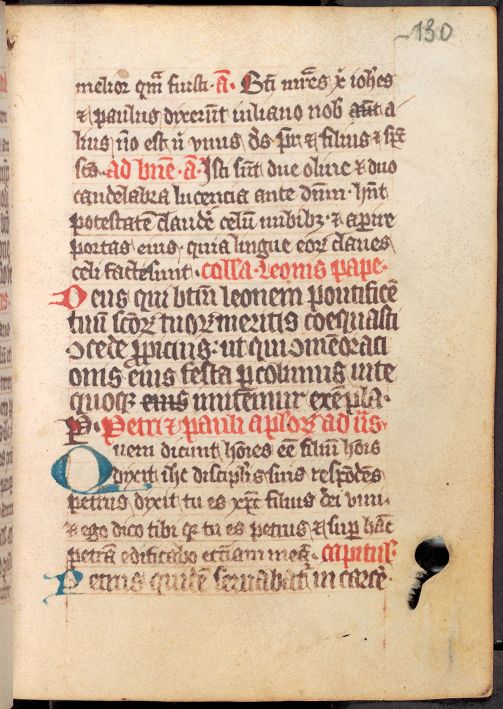 130
melior qm̄ fuisti · a̅ · Sc̄i mr̄es xp̄i ioh̄es
⁊ paulus dixerūt iuliano nob̄ a
lius nō est n̄ vnus d̄s pr̄ ⁊ filius ⁊ sp̄s
sc̄s · ad bn̄e · a̅ · Isti sūt due oliue ⁊ duo
candelabra lucencia ante dūm · hn̄t
potestatē claudē celū nubibꝫ · ⁊ aperire
portas eius · quia lingue eoꝝ claues
celi facte sunt · coll̄a · leonis pape ·
Deus qui btm̄ leonem pontificē
tuū scōꝝ tuoꝝ meritis coequasti
ꝯcede ꝓpicius : ut qui ꝯmēoraci
onis eius festa ꝑcolimus uite
quoqꝫ eius imitemur exēpla ·
Petri ⁊ pauli aploꝝ ad
Quem dicunt hōies eē filiū hōis
dixit ih̄c discipl̄is suis respōdēs
petrus dixit tu es xp̄c filius dei viui ·
⁊ ego dico tibi qꝫ tu es petrus ⁊ suꝑ hāc
petrā edificabo ecc̄iam meā · capitul̄ʒ
Petrus quidē seruabat̄ in carcē ·